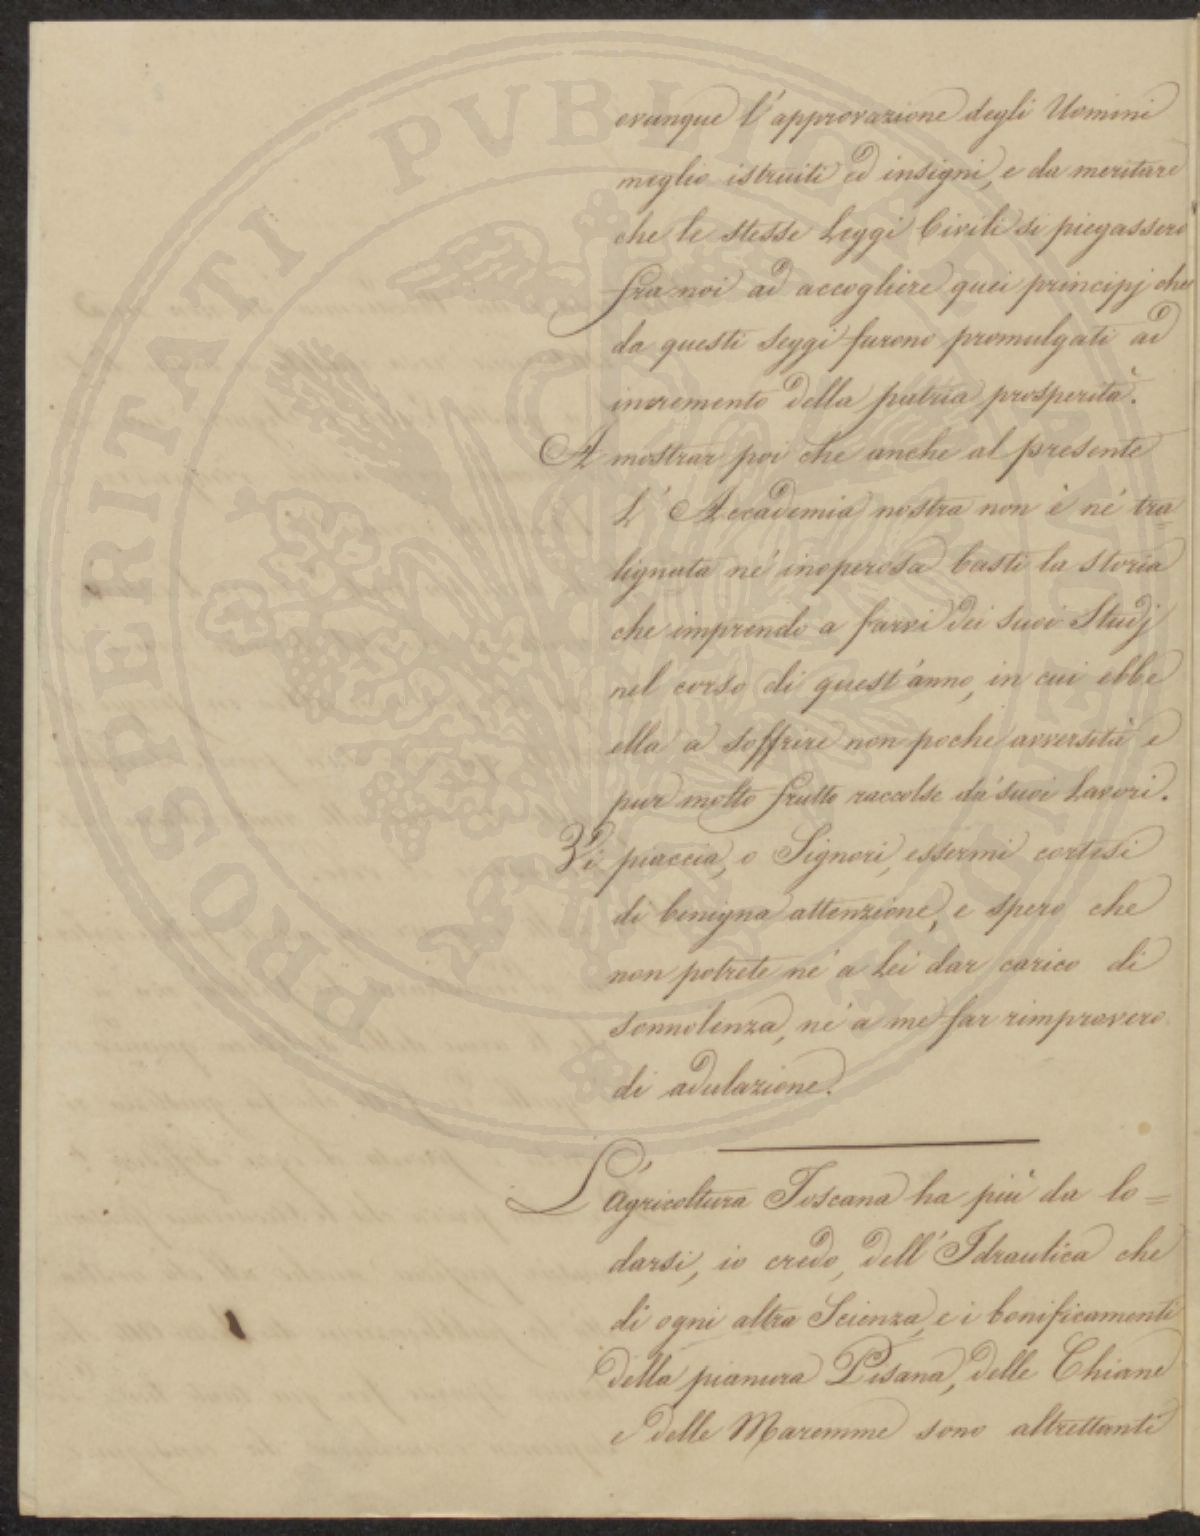 ovunque l'approvazione degli Uomini
meglio istruiti ed insigni, e da meritare
che le stesse Leggi Civili si piegassero
fra noi ad accogliere quei principj che
da questi seggi furono promulgati ad
incremento della patria prosperità.
A mostrar poi che anche al presente
L'Accademia nostra non è nè tra=
lignata nè inoperosa basti la storia
che imprendo a farvi dei suoi Studj
nel corso di quest'anno, in cui ebbe
ella a soffrire non poche avversità e
pur molto frutto raccolse da' suoi Lavori.
Vi piaccia, o Signori, essermi cortesi
di benigna attenzione, e spero che
non potrete nè a Lei dar carico di
sonnolenza, nè a me far rimprovero
di adulazione.
L'Agricoltura Toscana ha più da lo=
darsi, io credo, dell'Idraulica che
di ogni altra Scienza, e i bonificamenti
della pianura Pisana, delle Chiane
e delle Maremme sono altrettanti
PROSPERITATI PVBLICAE